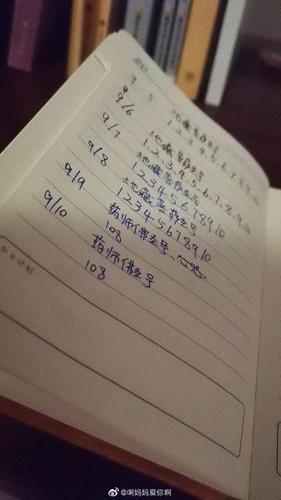 9 5 地藏菩萨圣号
1 2 3 4 5 6 7 8 9 10
9/6 地藏菩萨圣号
1, 2, 3, 4, 5, 6, 7, 8, 9, 10
9/7 地藏菩萨圣号
1 2 3 4 5 6 7 8 9 10
9/8 药师佛圣号、心咒
108
9/9 药师佛圣号
108
9/10
今日计划
@啊妈妈爱你啊